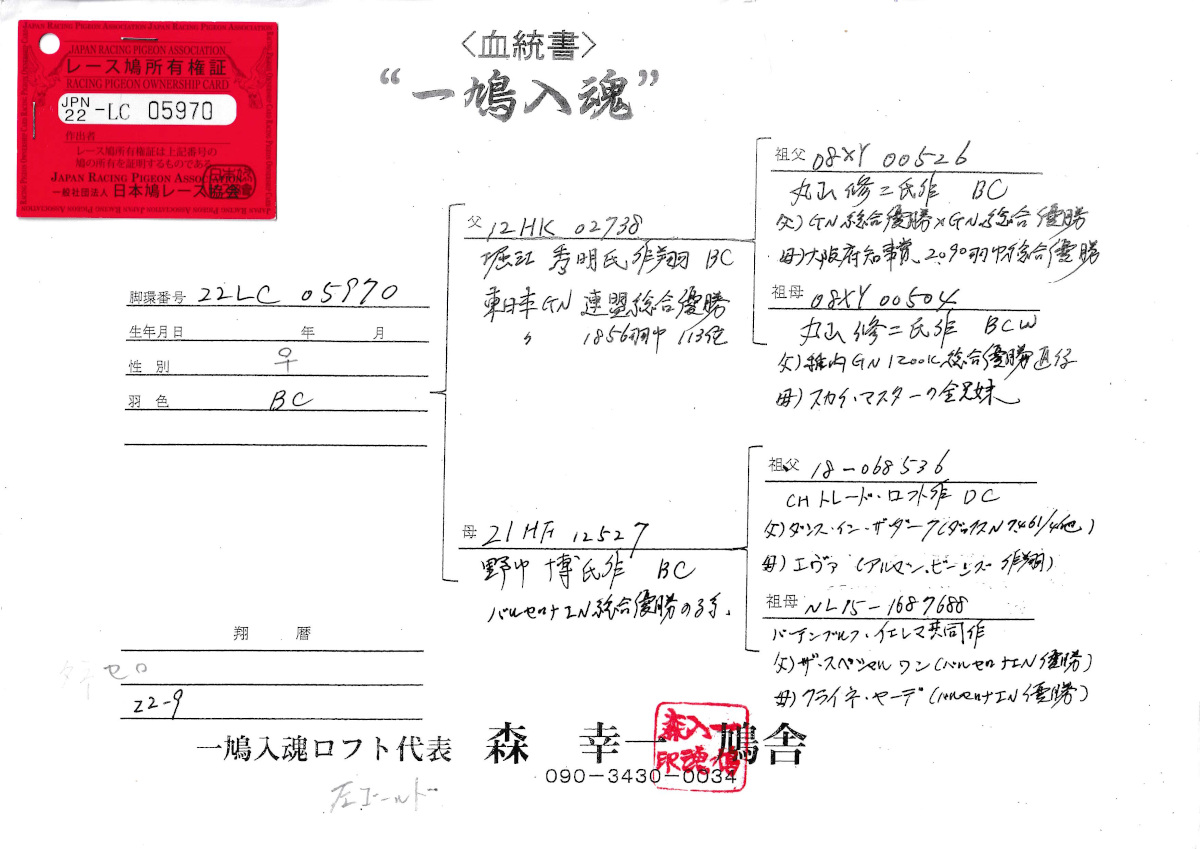 JAPAN RACING PIGEON ASSOCIATION
レース鳩所有権証
RACING PIGEON OWNERSHIP CARD
JPN
22 -LC 05970
作出者
レース鳩所有権証は上記番号の
鳩の所有を証明するものである
JAPAN RACING PIGEON ASSOCIATION
一般社団法人 日本鳩レース協会
〈血統書〉
“一鳩入魂”
脚環番号 22LC 05970
生年月日 年 月
性別 ♀
羽色 BC
父 12HK 02738
堀江 秀明氏作翔 BC
東日本GN 連盟総合優勝
〃 1856羽中 113位
祖父 08XY 00526
丸山 修二氏作 BC
父)GN総合優勝×GN総合優勝
母)大阪府知事賞、2090羽中総合優勝
祖母 08XY 00504
丸山 修二氏作 BCW
父)稚内GN1200K総合優勝直仔
母)スカイ・マスターの全兄妹
母 21HF 12527
野中 博氏作 BC
バルセロナIN総合優勝の孫、
祖父 18-068536
CHトレード・ロフト作 DC
父)ダンス・イン・ザ・ダーク(ダックスN7.461/4他)
母)エヴァ (アルマン、 作翔)
祖母 NL15-1687688
・イエレマ共同作
父)ザ・スペシャル ワン(バルセロナIN優勝)
母)クライネ・ヤーデ(バルセロナIN優勝)
翔 暦
セロ
22-9
一鳩入魂ロフト代表 森 幸一 鳩舎
090-3430-0034
左ゴールド